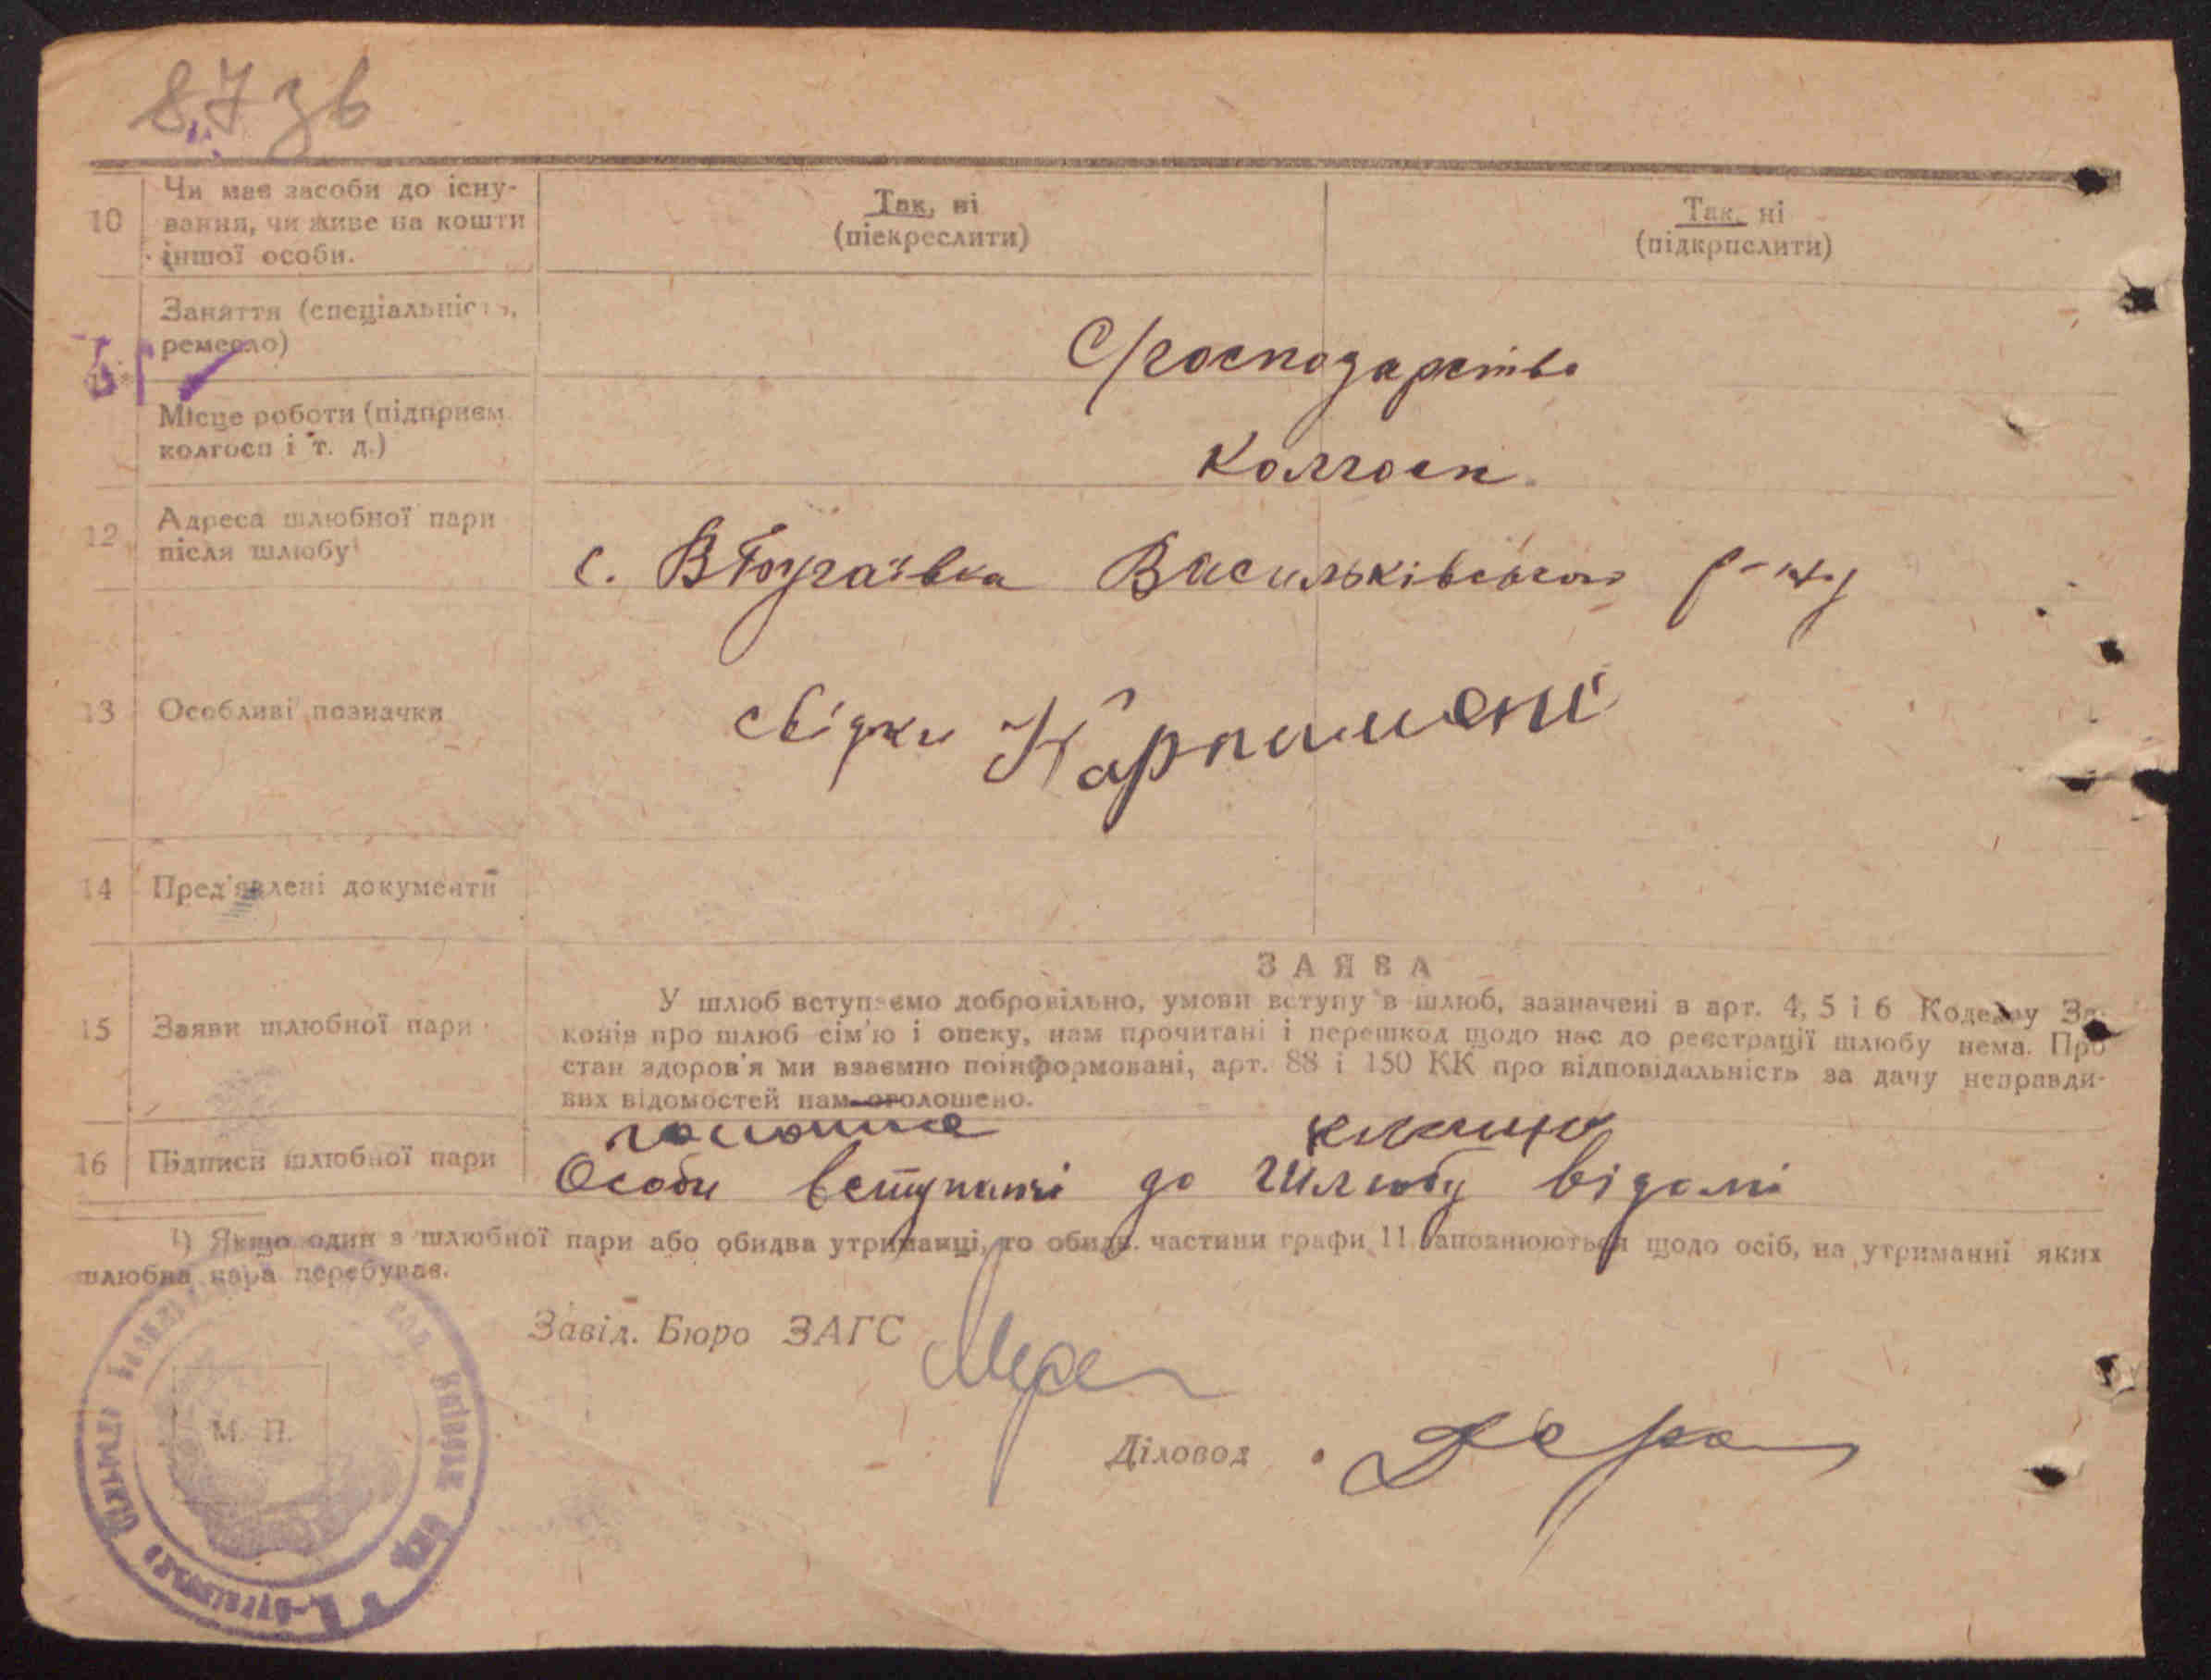 87 зв
10 Чи має засоби до існу-
вання, чи живе на кошти
іншої особи.
Так, ні
(піекреслити)
Так, ні
(підкрпслити)
Заняття (спеціальність,
ремесло)
С/господарство
Місце роботи (підприєм.
колгосп і т. д.)
Колгосп
12 Адреса шлюбної пари
після шлюбу
с. ВБугаївка Васильківського р-ну
13 Особливі позначки
свідки
14 Пред'явлені документи
ЗАЯВА
15 Заяви шлюбної пари
У шлюб вступаємо добровільно, умови вступу в шлюб, зазначені в арт. 4, 5 і 6 Кодексу За-
конів про шлюб сім'ю і опеку, нам прочитані і перешкод щодо нас до реєстрації шлюбу нема. Про
стан здоров'я ми взаємно поінформовані, арт. 88 і 150 КК про відповідальність за дачу неправди-
вих відомостей нам оголошено.
16 Підписи шлюбної пари
Особи вступаючі до Шлюбу відомі
¹) Якщо один з шлюбної пари або обидва утриманці, то обидв. частини графи 11 заповнюються щодо осіб, на утриманні яких
шлюбна пара перебуває.
Завід. Бюро ЗАГС
М. П.
Діловод